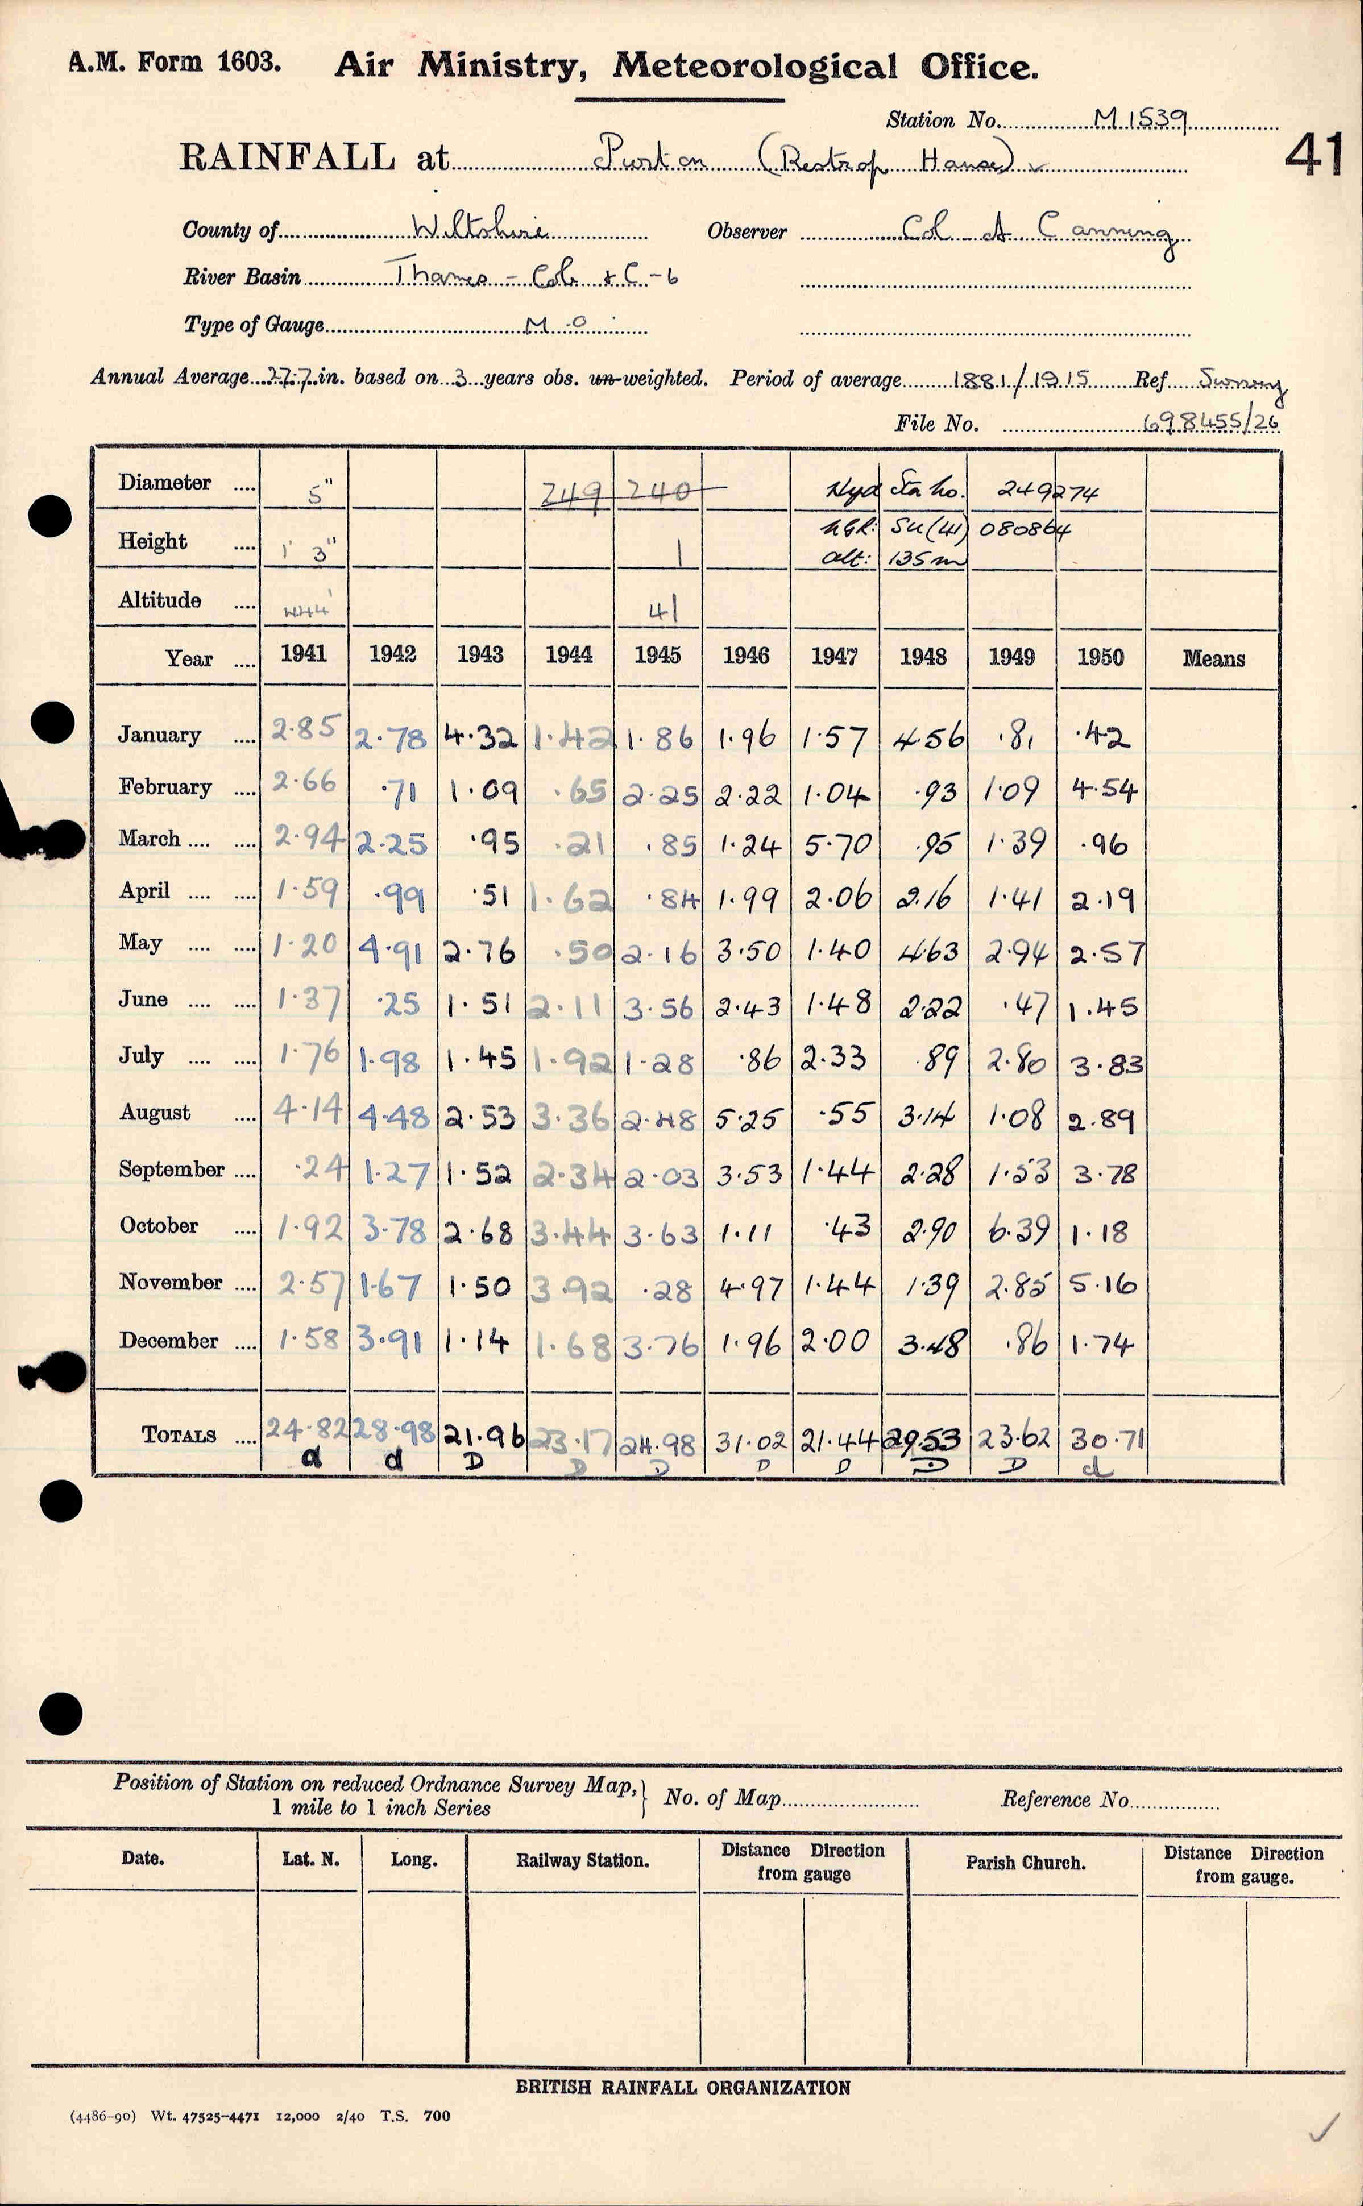 A.M. Form 1603. Air Ministry, Meteorological Office.
Station No. M1539
RAINFALL at Purton (Restrop House) ✓ 41
County of Wiltshire Observer Col A Canning
River Basin Thames - Cole & C-6
Type of Gauge M O
Annual Average 27.7 in. based on 3 years obs. un-weighted. Period of average 1881/1915 Ref Survey
File No. 698455/26
Diameter .... 5" 249 240 Hyd Sta no. 249274
Height .... 1' 3" 1 NGR: SU(41) 080864
alt: 135m
Altitude .... 444' 41
Year .... 1941 1942 1943 1944 1945 1946 1947 1948 1949 1950 Means
January .... 2.85 2.78 4.32 1.42 1.86 1.96 1.57 4.56 .81 .42
February .... 2.66 .71 1.09 .65 2.25 2.22 1.04 .93 1.09 4.54
March .... .... 2.94 2.25 .95 .21 .85 1.24 5.70 .95 1.39 .96
April .... .... 1.59 .99 .51 1.62 .84 1.99 2.06 2.16 1.41 2.19
May .... .... 1.20 4.91 2.76 .50 2.16 3.50 1.40 4.63 2.94 2.57
June .... .... 1.37 .25 1.51 2.11 3.56 2.43 1.48 2.22 .47 1.45
July .... .... 1.76 1.98 1.45 1.92 1.28 .86 2.33 .89 2.80 3.83
August .... 4.14 4.48 2.53 3.36 2.48 5.25 .55 3.14 1.08 2.89
September .... .24 1.27 1.52 2.34 2.03 3.53 1.44 2.28 1.53 3.78
October .... 1.92 3.78 2.68 3.44 3.63 1.11 .43 2.90 6.39 1.18
November .... 2.57 1.67 1.50 3.92 .28 4.97 1.44 1.39 2.85 5.16
December .... 1.58 3.91 1.14 1.68 3.76 1.96 2.00 3.48 .86 1.74
TOTALS .... 24.82 28.98 21.96 23.17 24.98 31.02 21.44 29.53 23.62 30.71
d d D D D D D D D d
Position of Station on reduced Ordnance Survey Map, } No. of Map Reference No.
1 mile to 1 inch Series
Date. Lat. N. Long. Railway Station. Distance Direction Parish Church. Distance Direction
from gauge from gauge.
BRITISH RAINFALL ORGANIZATION
(4486-90) Wt. 47525-4471 12,000 2/40 T.S. 700
✓